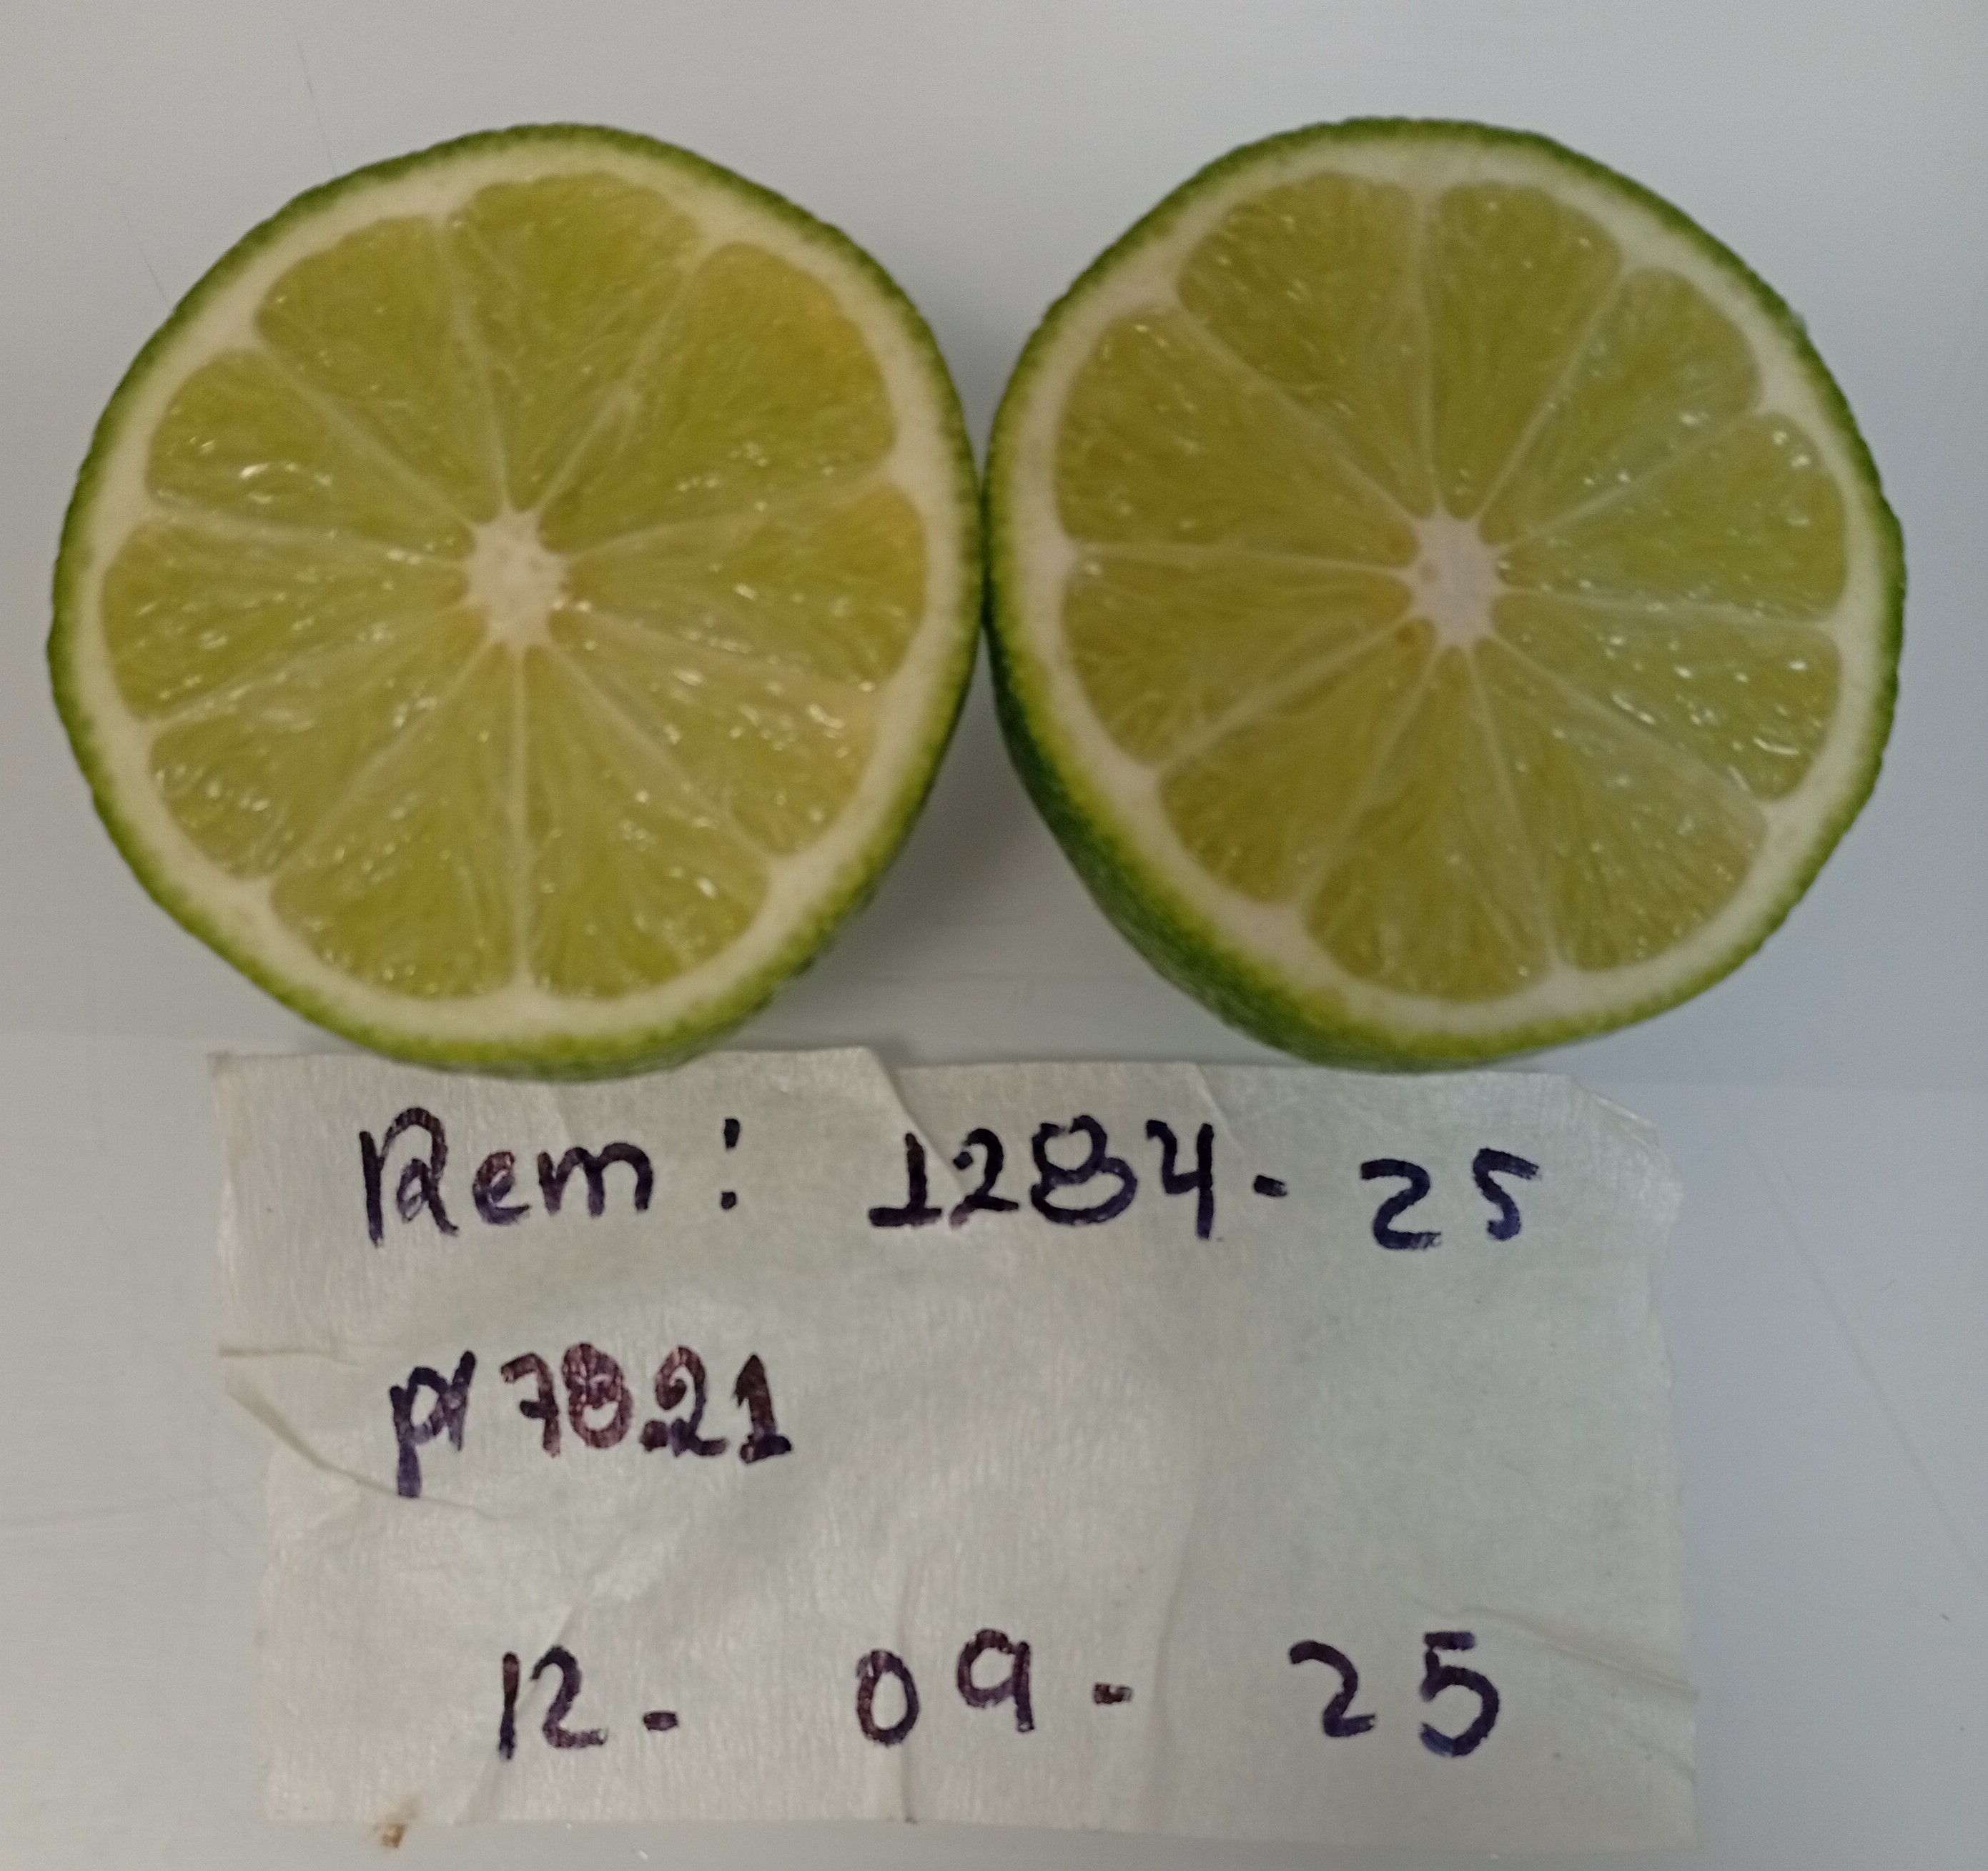 Rem: 1284- 25
pl 7821
12- 09- 25